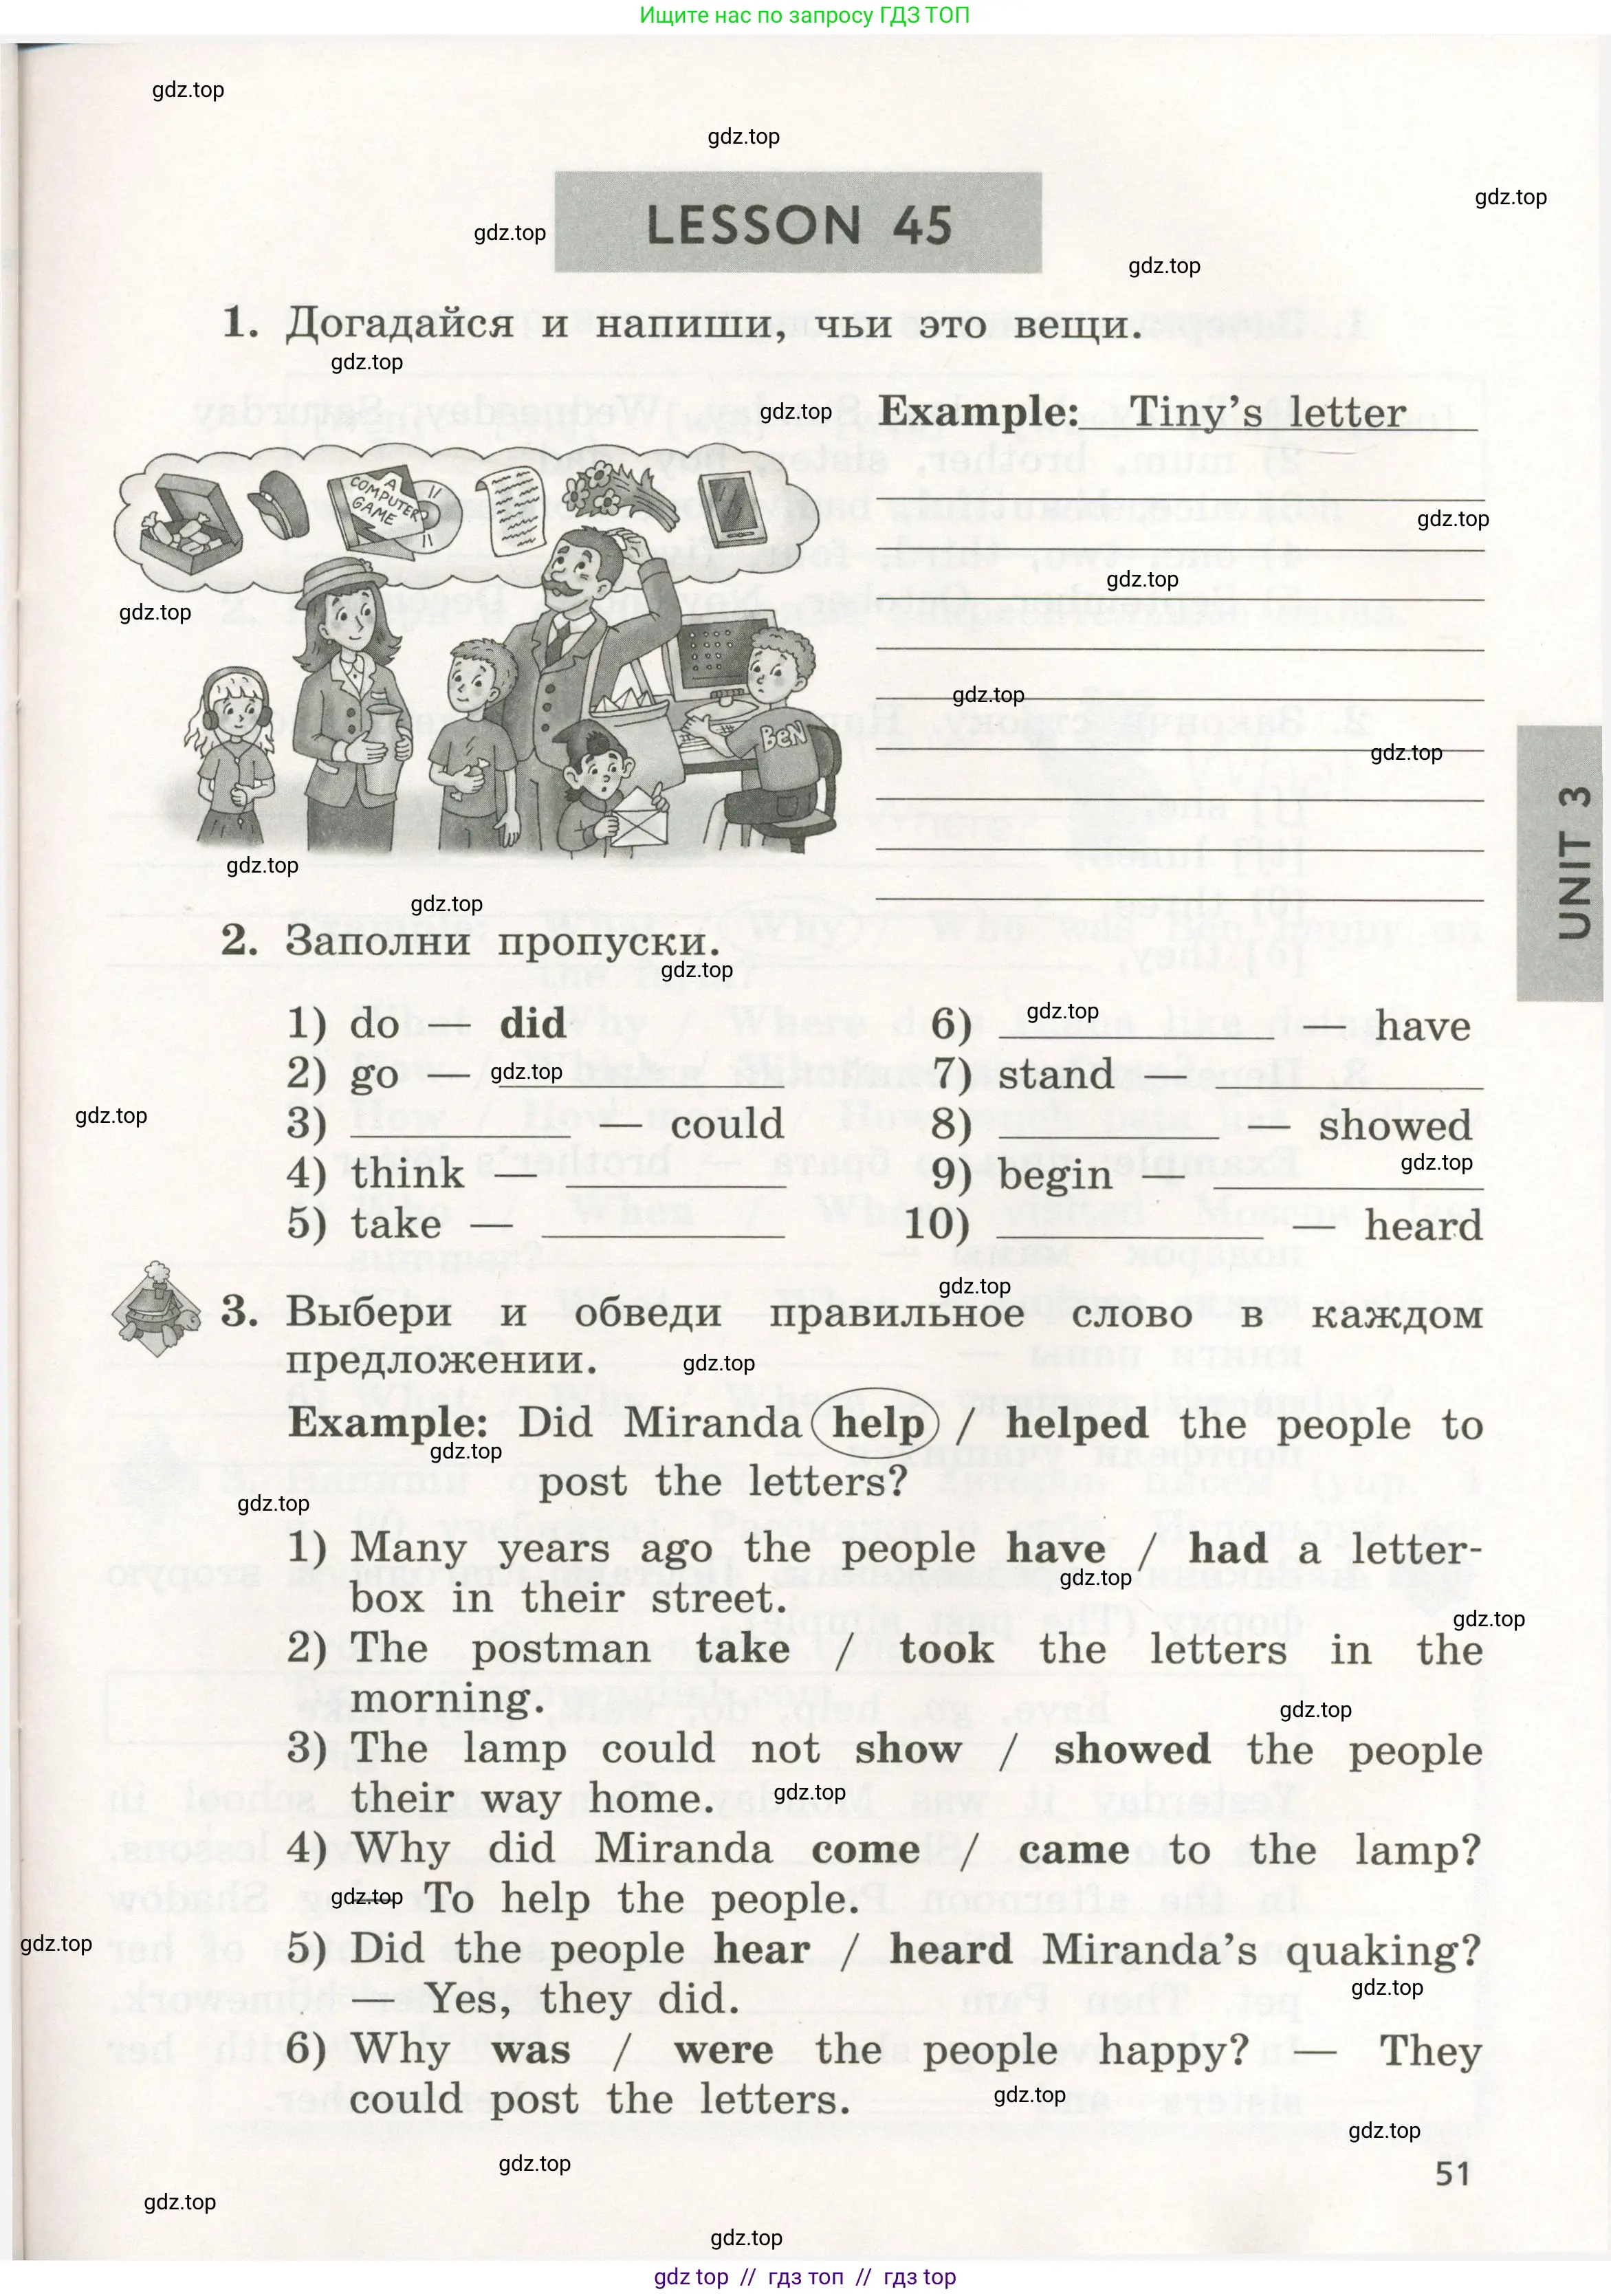 Ищите нас по запросу ГДЗ ТОП
gdz.top
gdz.top
gdz.top
gdz.top
LESSON 45
gdz.top
1. Догадайся и напиши, чьи это вещи.
gdz.top
gdz.top
Example: Tiny's letter
A COMPUTER GAME
gdz.top
gdz.top
gdz.top
gdz.top
BEN
gdz.top
UNIT 3
gdz.top
gdz.top
2. Заполни пропуски.
gdz.top
1) do — did
6) gdz.top — have
2) go — gdz.top
7) stand —
gdz.top
3) — could
8) — showed
4) think —
gdz.top
9) begin —
5) take —
10) — heard
gdz.top
3. Выбери и обведи правильное слово в каждом
предложении.
gdz.top
Example: Did Miranda help / helped the people to
gdz.top
post the letters?
gdz.top
1) Many years ago the people have / had a letter-
gdz.top
box in their street.
gdz.top
2) The postman take / took the letters in the
morning.
gdz.top
3) The lamp could not show / showed the people
their way home.
gdz.top
4) Why did Miranda come / came to the lamp?
gdz.top
— To help the people.
gdz.top
5) Did the people hear / heard Miranda's quaking?
gdz.top
— Yes, they did.
6) Why was / were the people happy? — They
could post the letters.
gdz.top
gdz.top
gdz.top
51
gdz.top
gdz.top
gdz top // гдз топ // гдз top